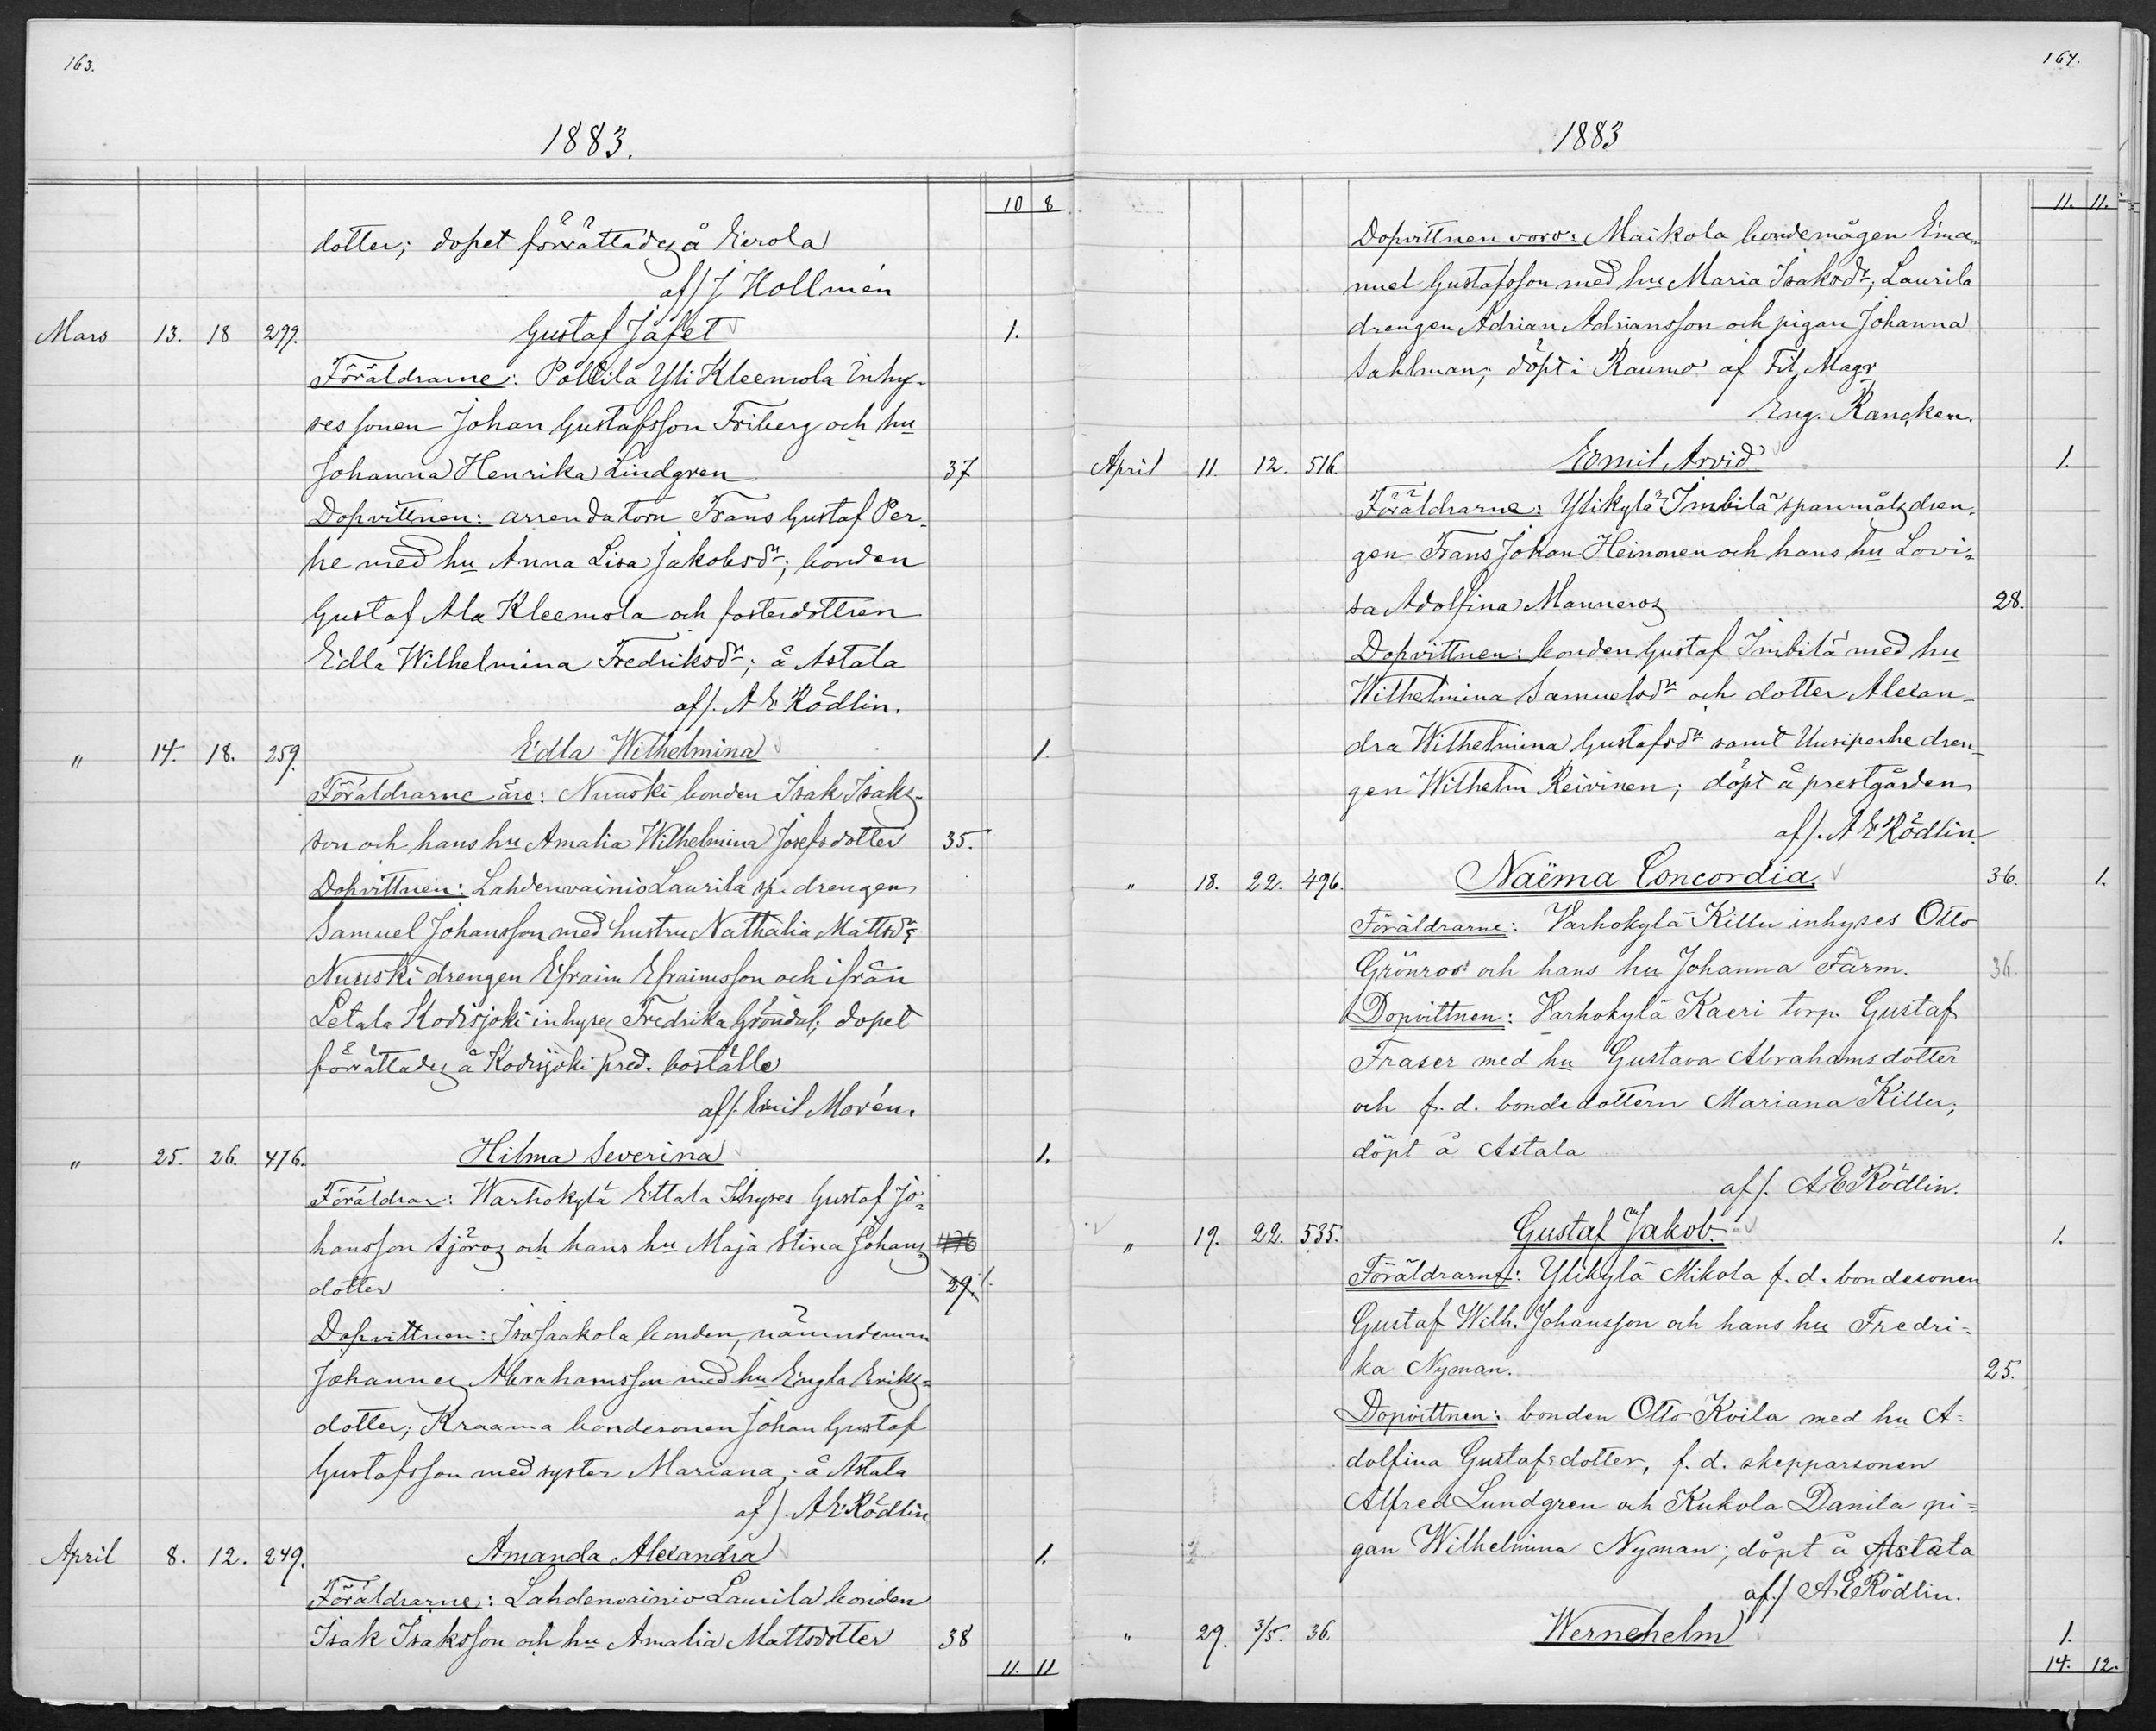 163.
1883.
10 8
dotter; dopet förrättades å Eerola
af/. J Hollmén
Mars 13. 18 299. Gustaf Jafet 1.
Föräldrarne: Pöllilä Yli Kleemola Inhy-
sessonen Johan Gustafsson Friberg och hu
Johanna Henrika Lindgren 37
Dopvittnen: arrendatorn Frans Gustaf Per-
he med hu Anna Lisa Jakobsdr; bonden
Gustaf Ala Kleemola och fosterdottren
Edla Wilhelmina Fredriksdr; å Astala
af/. A E Rödlin.
" 14. 18. 259. Edla Wilhelmina 1.
Föräldrarne äro: Nuuski bonden Isak Isaks-
son och hans hu Amalia Wilhelmina Josefsdotter 35.
Dopvittnen: Lahdenvainio Laurila sp. drengen
Samuel Johansson med hustru Nathalia Mattsdr;
Nuuski drengen Efraim Efraimsson och ifrån
Letala Kodisjoki inhyses Fredrika Gröndal; dopet
förrättades å Kodisjoki pred. boställe
af/. Emil Morén.
" 25. 26. 476. Hilma Severina 1.
Föräldrar: Warhokylä Ettala Ihyses Gustaf Jo-
hansson Sjöros och hans hu Maja Stina Johans 476
dotter 29.
Dopvittnen: Isosaakola bonden, nämndeman
Johannes Abrahamsson med hu Engla Eriks-
dotter; Kraama bondesonen Johan Gustaf
Gustafsson med syster Mariana; å Astala
af/. A E Rödlin
April 8. 12. 249. Amanda Alexandra 1.
Föräldrarne: Lahdenvainio Laurila bonden
Isak Isaksson och hu Amalia Mattsdotter 38
11. 11
164.
1883
11. 11.
Dopvittnen voro: Maikola bondemågen Ema-
nuel Gustafsson med hu Maria Isaksdr; Laurila
drengen Adrian Adriansson och pigan Johanna
Sahlman; döpt i Raumo af Fil. Magr
Eng. Rancken.
April 11. 12. 516. Eemil Arvid 1.
Föräldrarne: Ylikylä Imbilä spanmålsdren-
gen Frans Johan Heinonen och hans hu Lovi-
sa Adolfina Manneros 28.
Dopvittnen: bonden Gustaf Imbilä med hu
Wilhelmina Samuelsdr och dotter Alexan-
dra Wilhelmina Gustafsdr samt Uusiperhe dren-
gen Wilhelm Reivinen; döpt å prestgården
af/. A E Rödlin.
" 18. 22. 496. Naëma Concordia 36. 1.
Föräldrarne: Varhokylä Killu inhyses Otto
Grönroos och hans hu Johanna Färm. 36.
Dopvittnen: Varhokylä Kaeri torp. Gustaf
Fraser med hu Gustava Abrahamsdotter
och f. d. bondedottern Mariana Killu;
döpt å Astala
af/. A E Rödlin.
" 19. 22. 535. Gustaf Jakob. 1.
Föräldrarne: Ylikylä Mikola f. d. bondesonen
Gustaf Wilh. Johansson och hans hu Fredri-
ka Nyman. 25.
Dopvittnen: bonden Otto Kvila med hu A-
dolfina Gustafsdotter, f. d. skepparsonen
Alfred Lundgren och Kukola Danila pi-
gan Wilhelmina Nyman; döpt å Astala
af/. A E Rödlin.
" 29. 3/5. 36. Wernehelm 1.
14. 12.